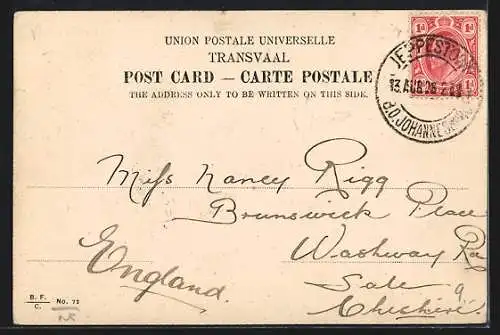 UNION POSTALE UNIVERSELLE
TRANSVAAL
POST CARD — CARTE POSTALE
THE ADDRESS ONLY TO BE WRITTEN ON THIS SIDE.
1d 1d
JEPPESTOWN
13 AUG
B.O. JOHANNESBURG
Miss Nancy Rigg
Brunswick Place
Washway Rd
Sale
Cheshire
England.
B. F.
C.
No. 73